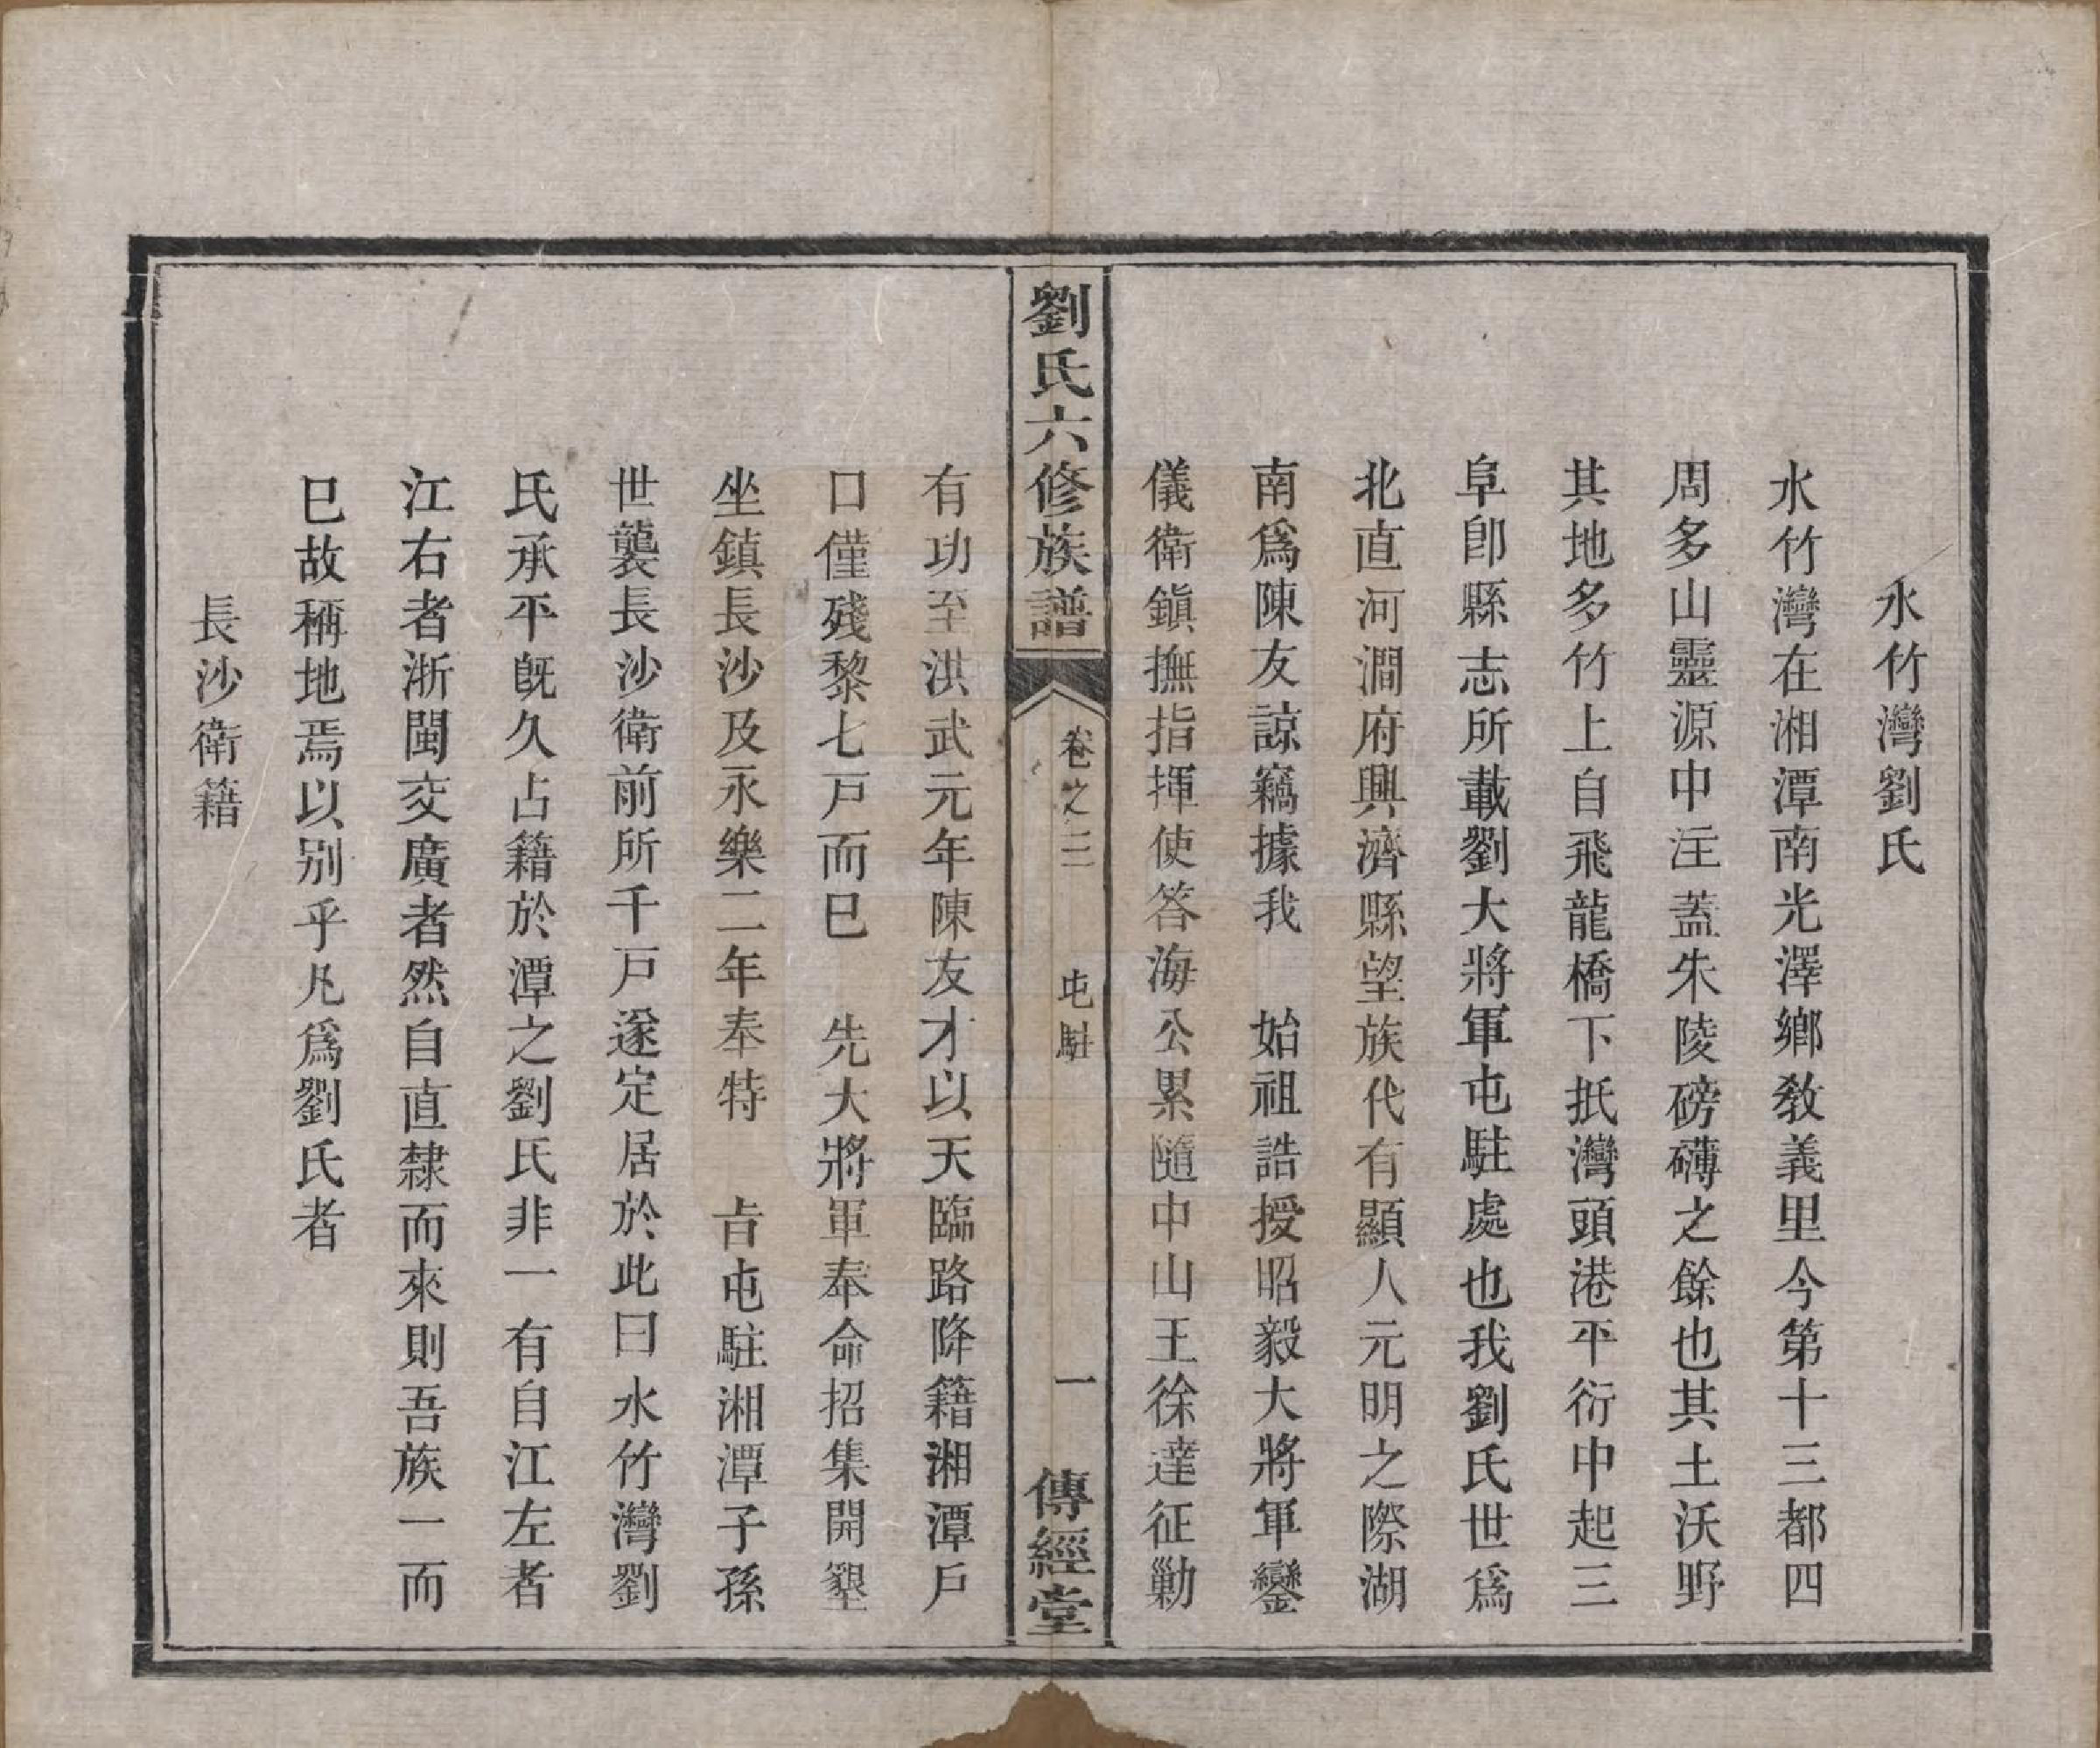 水竹灣劉氏
水竹灣在湘潭南光澤鄉敎義里今第十三都四
周多山靈源中注蓋朱陵磅礡之餘也其土沃野
其地多竹上自飛龍橋下抵灣頭港平衍中起三
阜卽縣志所載劉大將軍屯駐處也我劉氏世爲
北直河澗府興濟縣望族代有顯人元明之際湖
南爲陳友諒竊據我　始祖誥授昭毅大將軍鑾
儀衛鎭撫指揮使答海公累隨中山王徐達征勦
劉氏六修族譜
卷之三
屯駐
一
傳經堂
有功至洪武元年陳友才以天臨路降籍湘潭戶
口僅殘黎七戶而巳　先大將軍奉命招集開墾
坐鎭長沙及永樂二年奉特　旨屯駐湘潭子孫
世襲長沙衛前所千戶遂定居於此曰水竹灣劉
氏承平旣久占籍於潭之劉氏非一有自江左者
江右者浙閩交廣者然自直隸而來則吾族一而
巳故稱地焉以别乎凡爲劉氏者
長沙衛籍